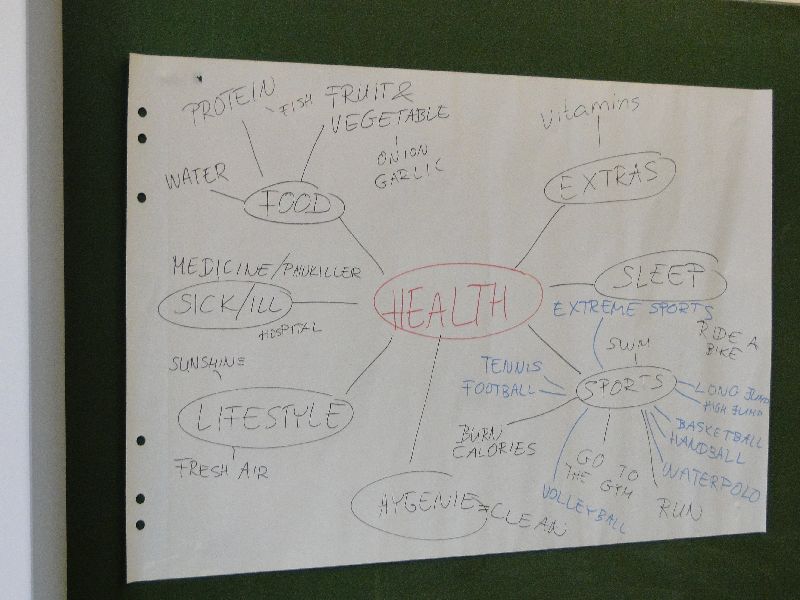 PROTEIN
FISH
FRUIT &
VEGETABLE
ONION
GARLIC
WATER
FOOD
vitamins
EXTRAS
MEDICINE/PAINKILLER
SICK/ILL
HOSPITAL
HEALTH
SLEEP
EXTREME SPORTS
RIDE A
BIKE
SWIM
SPORTS
TENNIS
FOOTBALL
LONG JUMP
HIGH JUMP
BASKETBALL
HANDBALL
WATERPOLO
BURN
CALORIES
GO TO
THE GYM
VOLLEYBALL
RUN
SUNSHINE
LIFESTYLE
FRESH AIR
HYGENIE = CLEAN